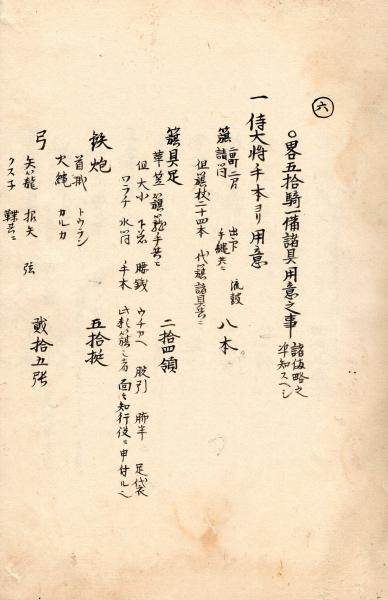 六
○畧五拾騎一備諸具用意之事 諸伍略之
準知スヘシ
一 侍大将手本ヨリ用意
籏 八本
諸筒 出下 手縄共ニ 流鼓
但籏杖二十四本 代籏諸具共ニ
籏具足 二拾四領
草笠 籏籠手共ニ
但大小 下着 腰銭 ウチカヘ 股引 肺半 足袋
ワラチ 水筒 手本 此彩籏之者 面々知行役ニ申付ルヘシ
鉄炮 五拾挺
首戒 トウラン
火縄 カルカ
弓 貳拾五張
矢籠 根矢 弦
クスネ 鞢共ニ